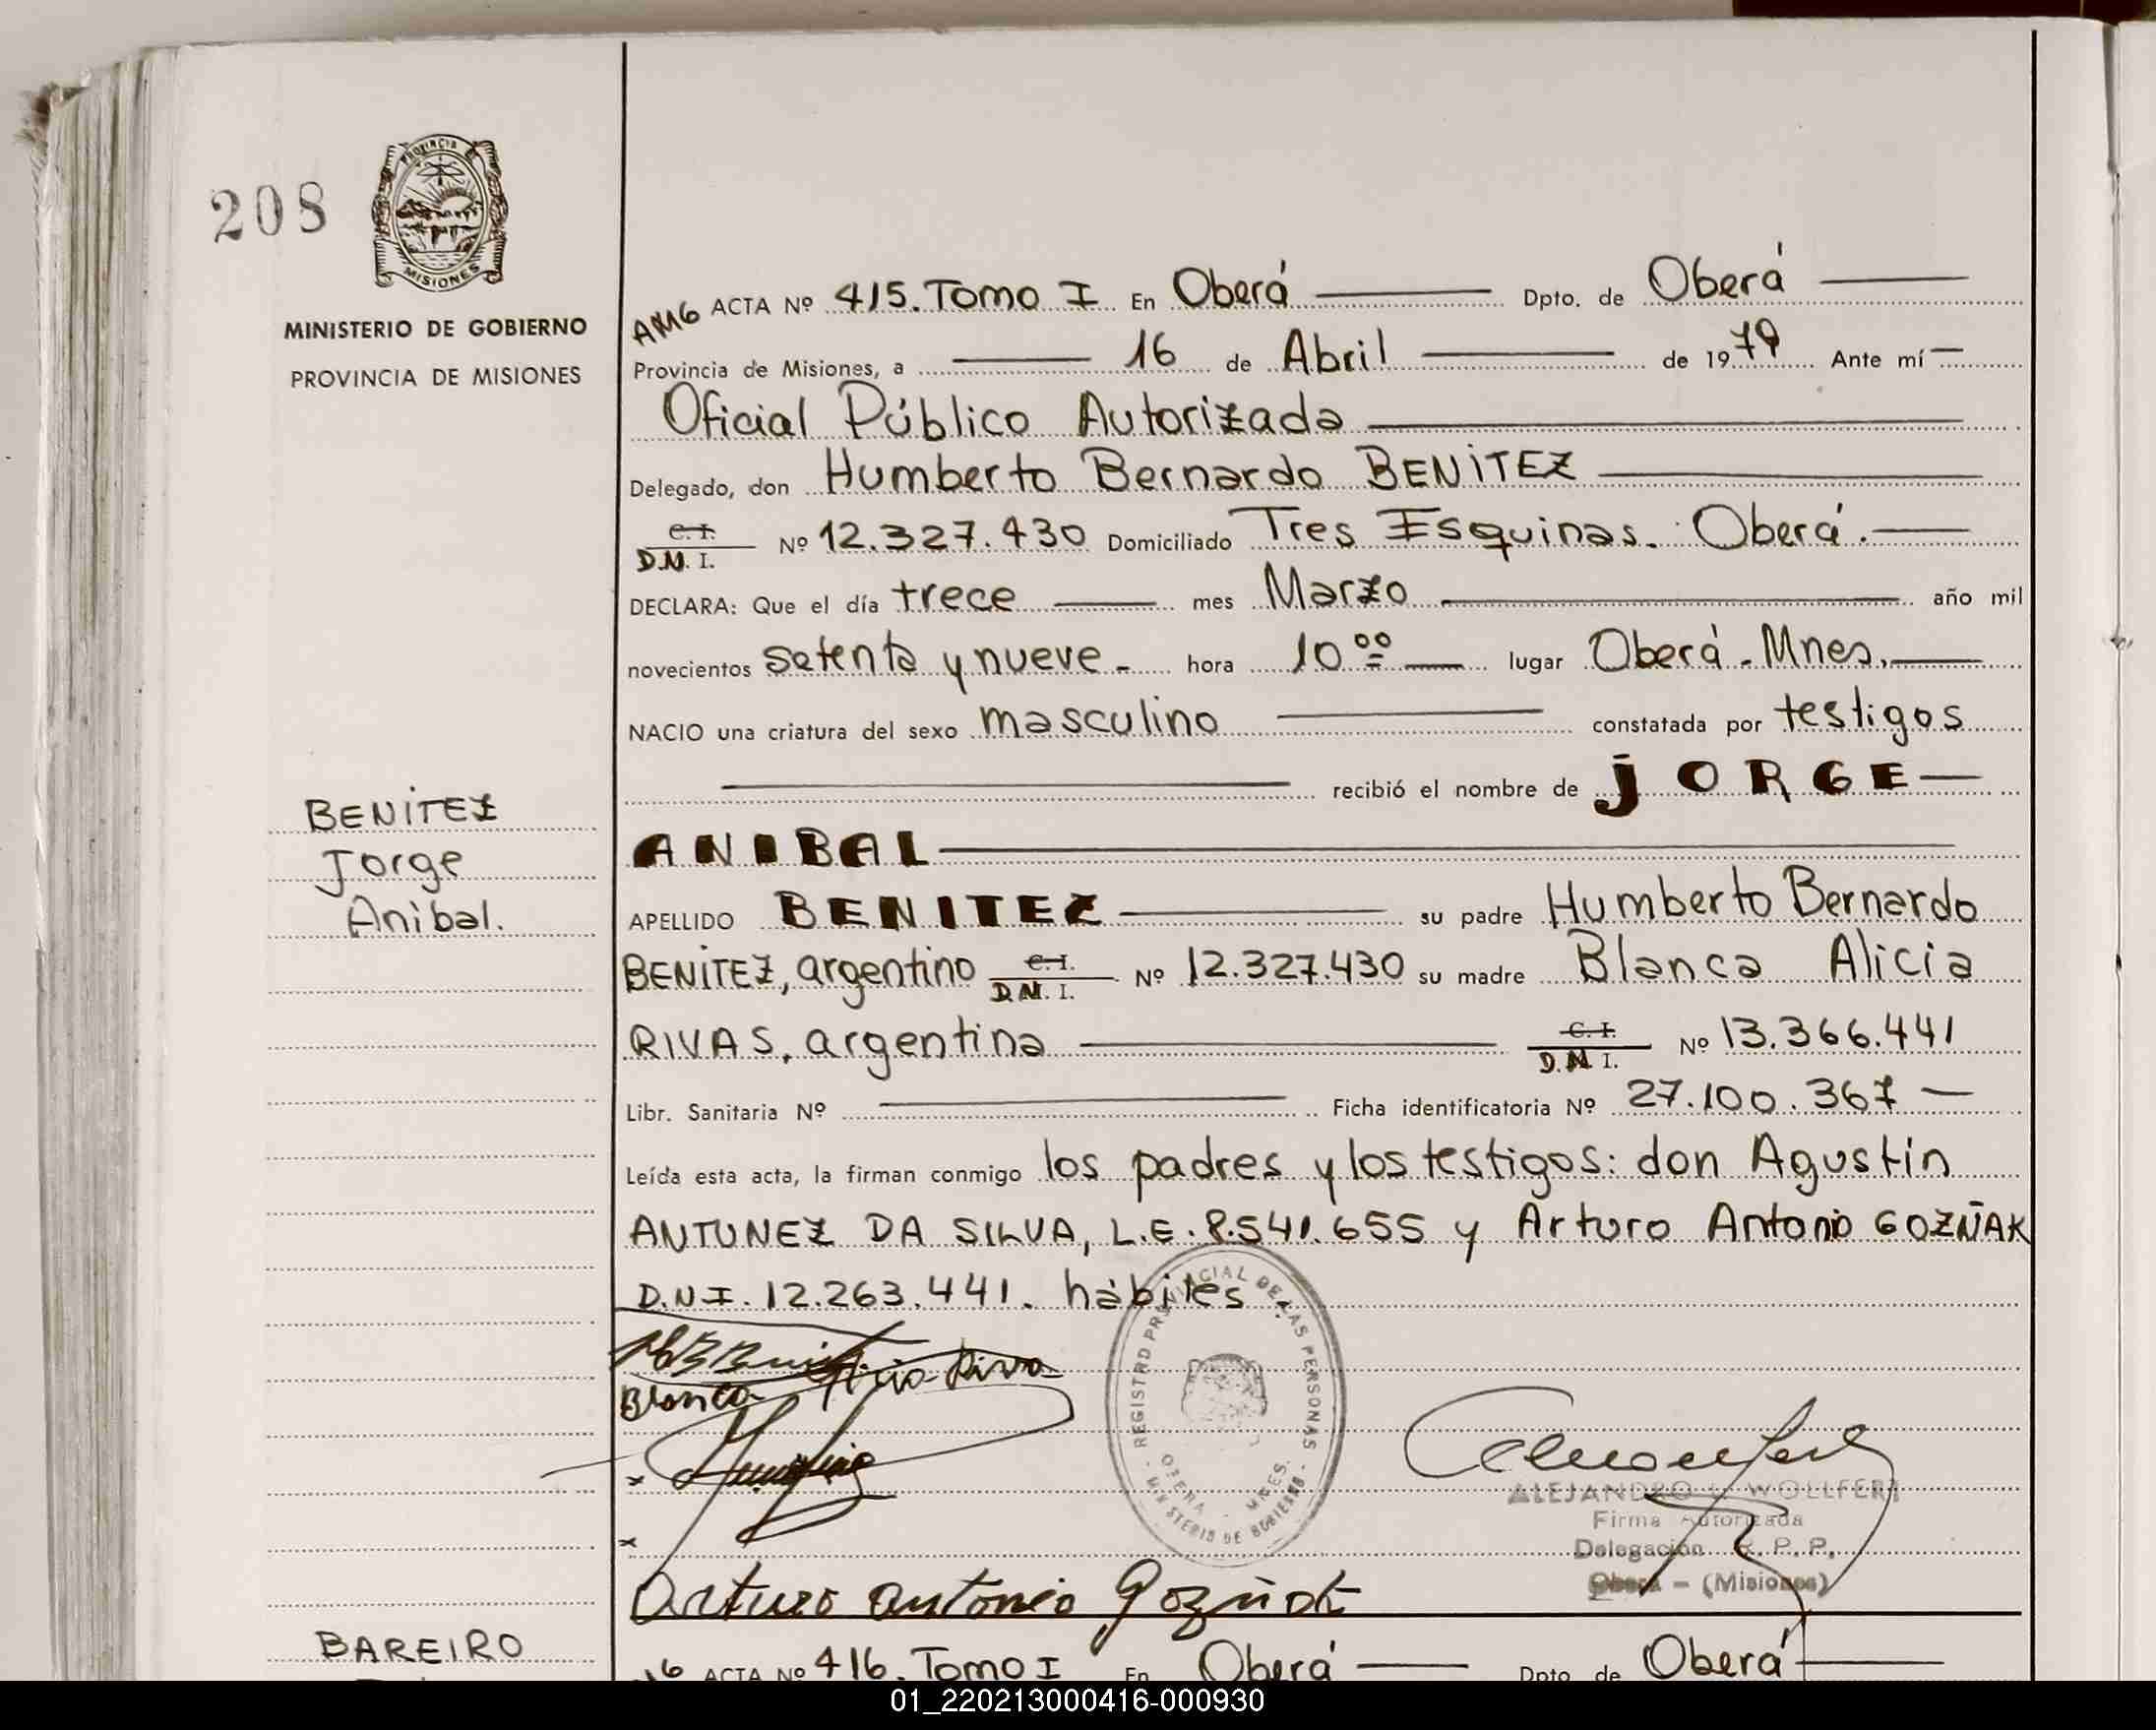 208
PROVINCIA DE
MISIONES
MINISTERIO DE GOBIERNO
PROVINCIA DE MISIONES
AMG ACTA Nº 415. Tomo I En Oberá Dpto. de Oberá
Provincia de Misiones, a 16 de Abril de 1979 Ante mí
Oficial Público Autorizado
Delegado, don Humberto Bernardo BENITEZ
C.I.
D.N.I. Nº 12.327.430 Domiciliado Tres Esquinas. Oberá.
DECLARA: Que el día trece mes Marzo año mil
novecientos setenta y nueve - hora 10 00 lugar Oberá - Mnes.
NACIO una criatura del sexo masculino constatada por testigos
recibió el nombre de JORGE
ANIBAL
BENITEZ
Jorge
Anibal.
APELLIDO BENITEZ su padre Humberto Bernardo
BENITEZ, argentino C.I. D.N.I. Nº 12.327.430 su madre Blanca Alicia
RIVAS, argentina C.I. D.N.I. Nº 13.366.441
Libr. Sanitaria Nº Ficha identificatoria Nº 27.100.367
Leída esta acta, la firman conmigo los padres y los testigos: don Agustín
ANTUNEZ DA SILVA, L.E. 8.541.655 y Arturo Antonio GOZÑAK
D.N.I. 12.263.441. hábiles.
Blanca Alicia Rivas
REGISTRO PROVINCIAL DE LAS PERSONAS
OBERA - MNES.
MINISTERIO DE GOBIERNO
ALEJANDRO WOLLFERT
Firma Autorizada
Delegación R. P. P.
Oberá - (Misiones)
Arturo Antonio Gozñak
BAREIRO
ACTA Nº 416. Tomo I En Oberá Dpto de Oberá
01_220213000416-000930